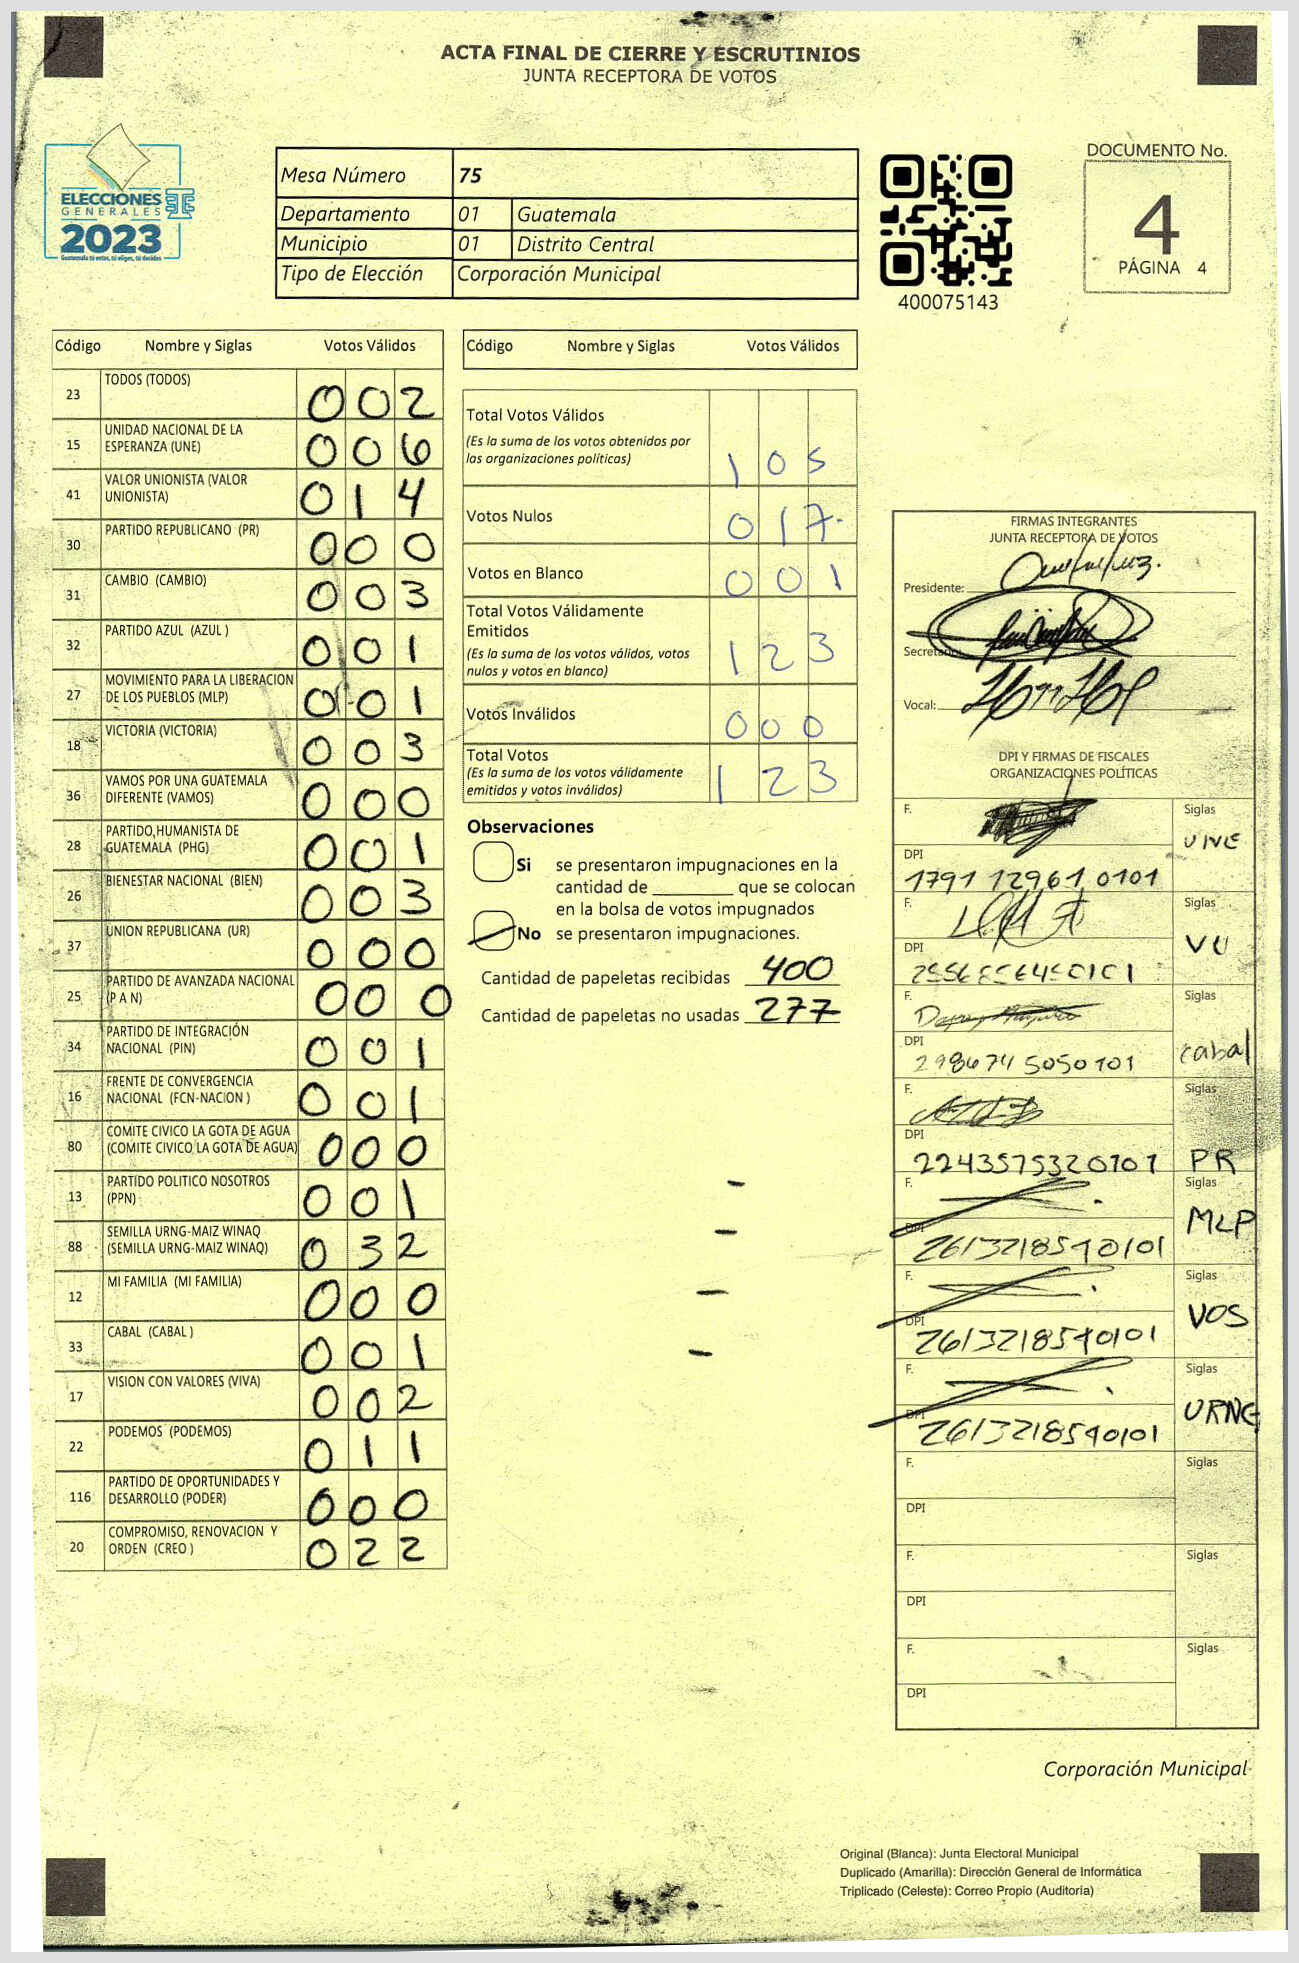 ACTA FINAL DE CIERRE Y ESCRUTINIOS
JUNTA RECEPTORA DE VOTOS
ELECCIONES
GENERALES
2023
Guatemala tú entas, tú eliges, tú decides
Mesa Número 75
Departamento 01 Guatemala
Municipio 01 Distrito Central
Tipo de Elección Corporación Municipal
400075143
DOCUMENTO No.
4
PÁGINA 4
Código Nombre y Siglas Votos Válidos
23 TODOS (TODOS) 002
15 UNIDAD NACIONAL DE LA ESPERANZA (UNE) 006
41 VALOR UNIONISTA (VALOR UNIONISTA) 014
30 PARTIDO REPUBLICANO (PR) 000
31 CAMBIO (CAMBIO) 003
32 PARTIDO AZUL (AZUL ) 001
27 MOVIMIENTO PARA LA LIBERACION DE LOS PUEBLOS (MLP) 001
18 VICTORIA (VICTORIA) 003
36 VAMOS POR UNA GUATEMALA DIFERENTE (VAMOS) 000
28 PARTIDO HUMANISTA DE GUATEMALA (PHG) 001
26 BIENESTAR NACIONAL (BIEN) 003
37 UNION REPUBLICANA (UR) 000
25 PARTIDO DE AVANZADA NACIONAL (P A N) 000
34 PARTIDO DE INTEGRACIÓN NACIONAL (PIN) 001
16 FRENTE DE CONVERGENCIA NACIONAL (FCN-NACION ) 001
80 COMITE CIVICO LA GOTA DE AGUA (COMITE CIVICO LA GOTA DE AGUA) 000
13 PARTIDO POLITICO NOSOTROS (PPN) 001
88 SEMILLA URNG-MAIZ WINAQ (SEMILLA URNG-MAIZ WINAQ) 032
12 MI FAMILIA (MI FAMILIA) 000
33 CABAL (CABAL ) 001
17 VISION CON VALORES (VIVA) 002
22 PODEMOS (PODEMOS) 011
116 PARTIDO DE OPORTUNIDADES Y DESARROLLO (PODER) 000
20 COMPROMISO, RENOVACION Y ORDEN (CREO ) 022
Código Nombre y Siglas Votos Válidos
Total Votos Válidos
(Es la suma de los votos obtenidos por
las organizaciones políticas) 105
Votos Nulos 017
Votos en Blanco 001
Total Votos Válidamente
Emitidos
(Es la suma de los votos válidos, votos
nulos y votos en blanco) 123
Votos Inválidos 000
Total Votos
(Es la suma de los votos válidamente
emitidos y votos inválidos) 123
Observaciones
Si se presentaron impugnaciones en la
cantidad de ________ que se colocan
en la bolsa de votos impugnados
No se presentaron impugnaciones.
Cantidad de papeletas recibidas 400
Cantidad de papeletas no usadas 277
FIRMAS INTEGRANTES
JUNTA RECEPTORA DE VOTOS
Presidente:
Secretario:
Vocal:
DPI Y FIRMAS DE FISCALES
ORGANIZACIONES POLÍTICAS
F. Siglas
UNE
DPI 1791 12961 0101
F. Siglas
VU
DPI
F. Siglas
cabal
DPI 298674 5050101
F. Siglas
PR
DPI 2243575320101
F. Siglas
MLP
DPI 2613218590101
F. Siglas
VOS
DPI 2613218590101
F. Siglas
URNG
DPI 2613218590101
F. Siglas
DPI
F. Siglas
DPI
F. Siglas
DPI
Corporación Municipal
Original (Blanca): Junta Electoral Municipal
Duplicado (Amarilla): Dirección General de Informática
Triplicado (Celeste): Correo Propio (Auditoría)